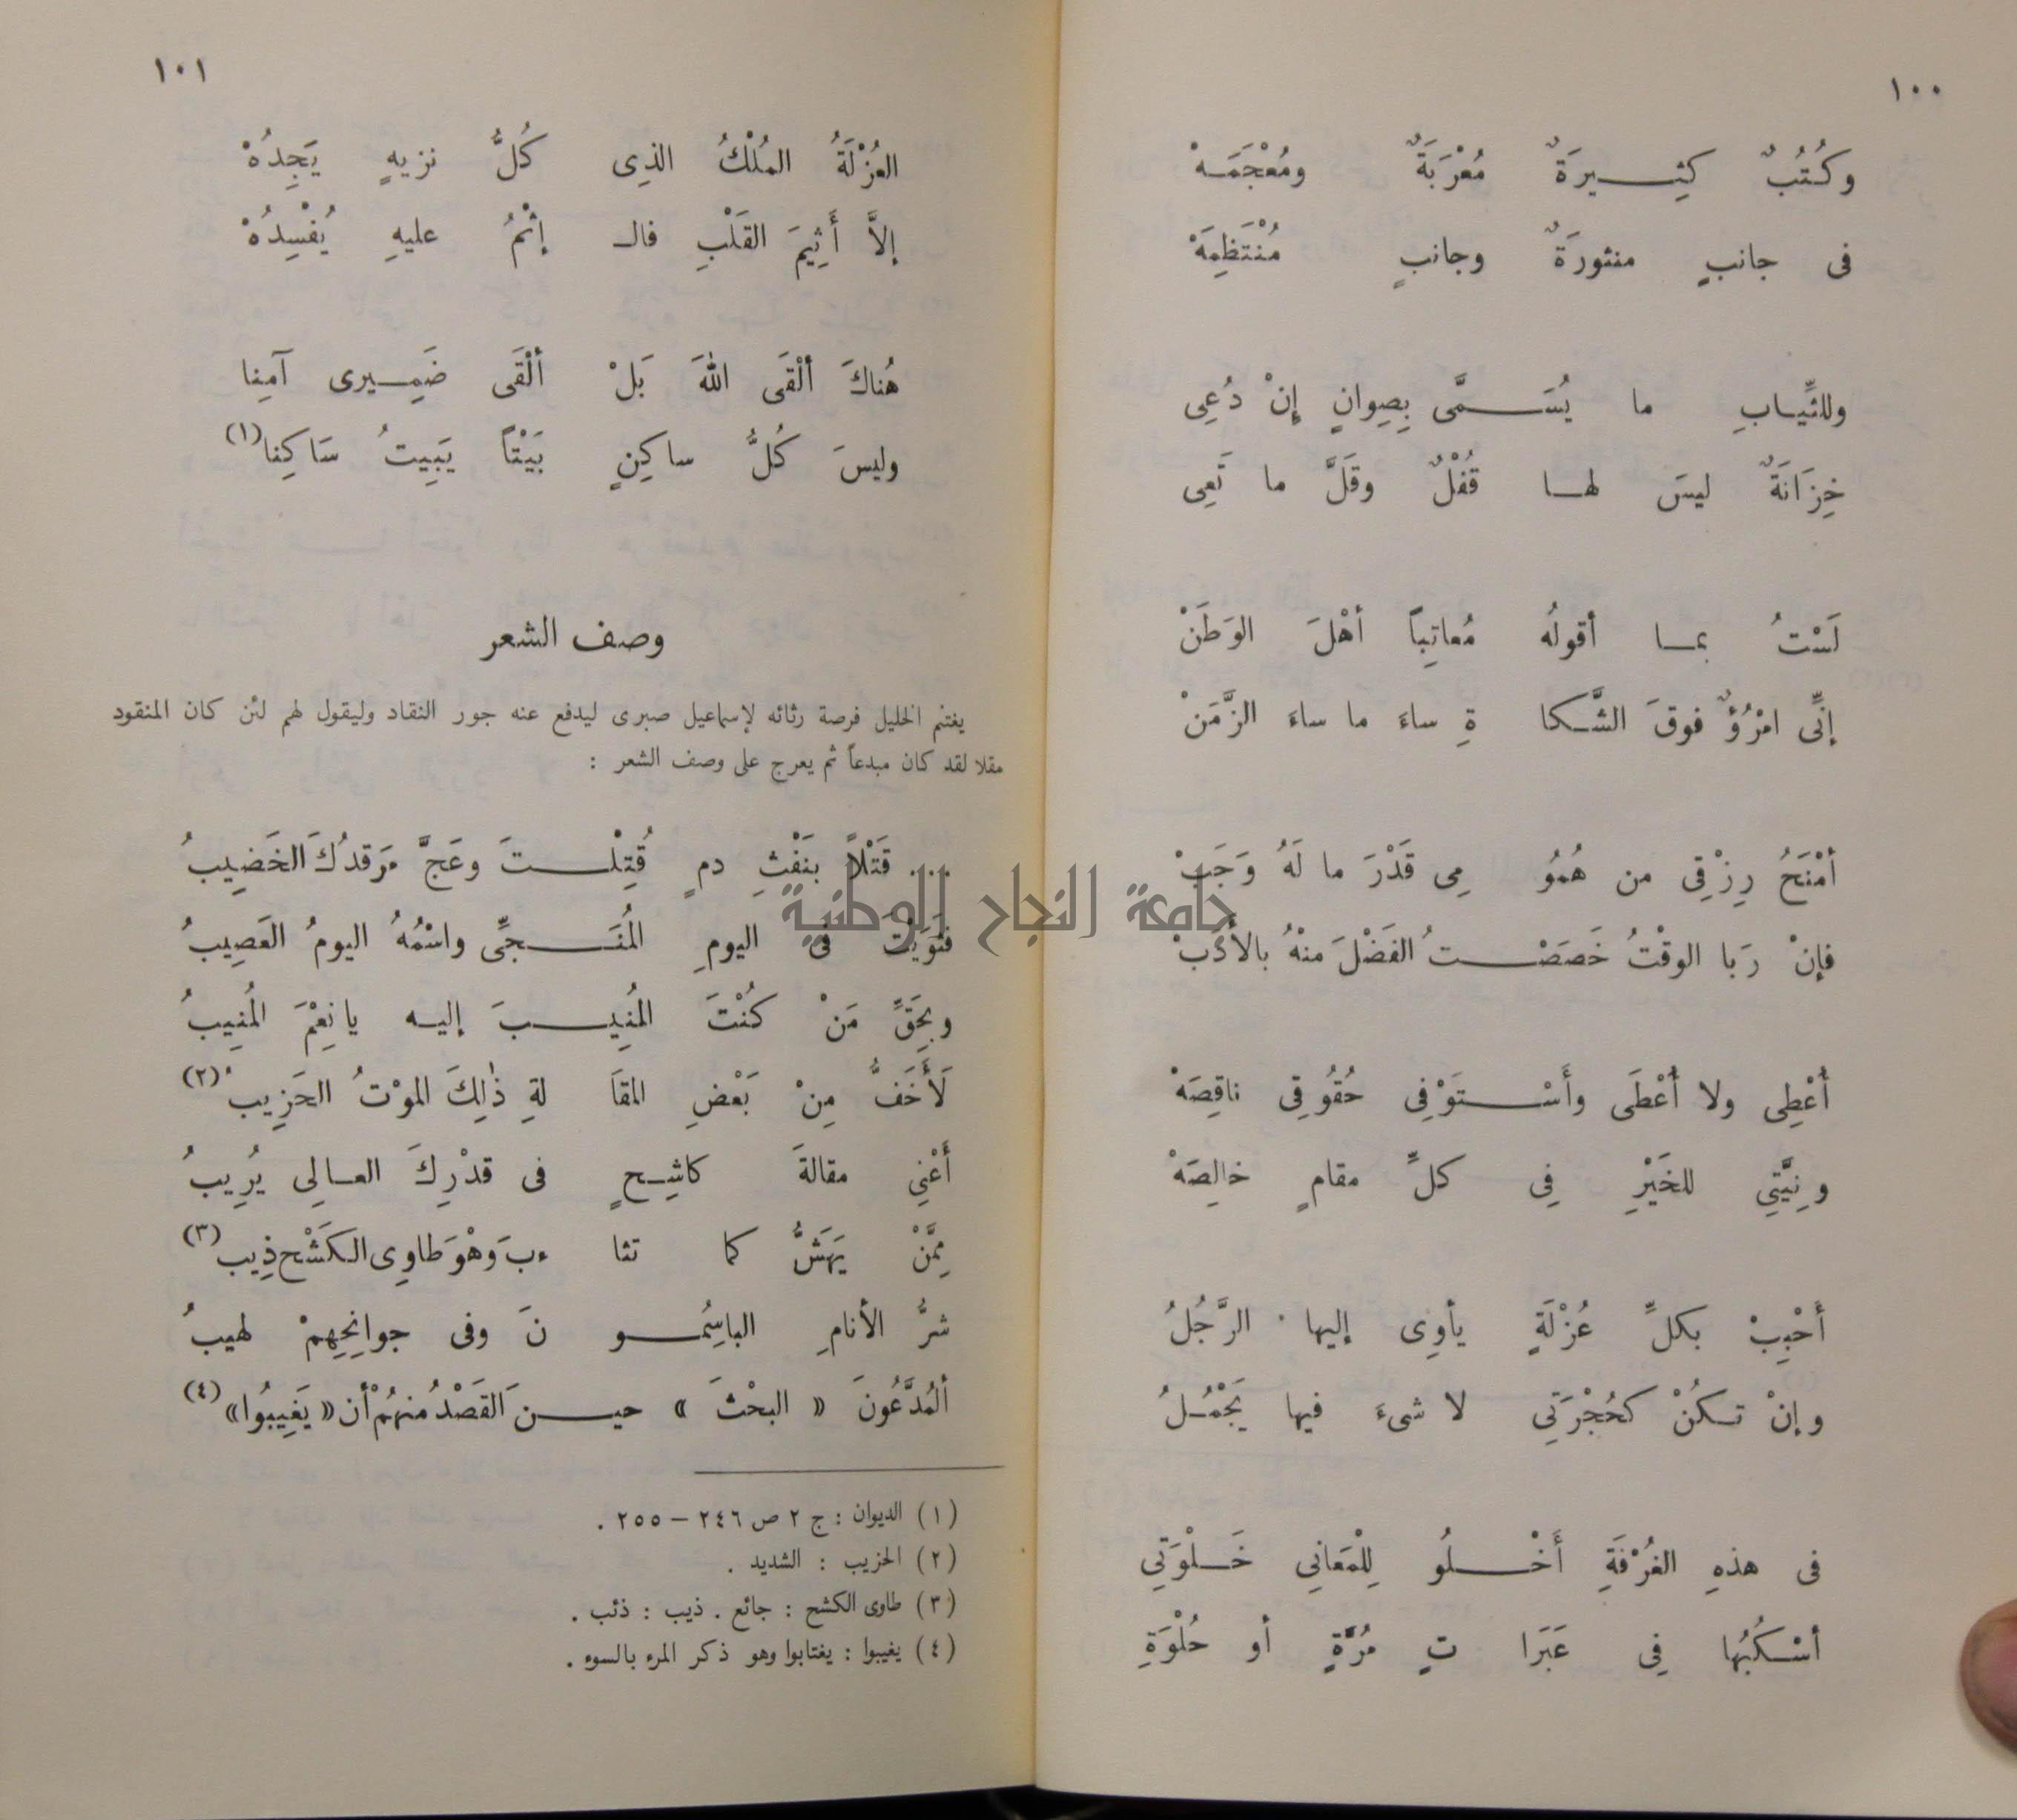 ١٠٠
وكُتُبٌ كثِيرَةٌ مُعْرَبَةٌ ومُعْجَمَهْ
فى جانبٍ منثورَةٌ وجانبٍ مُنْتَظِمَهْ
وللثِّيابِ ما يُسَمَّى بِصِوانٍ إِنْ دُعِى
خِزَانَةٌ ليسَ لها قُفْلٌ وقَلَّ ما تَعِى
لَسْتُ بما أقولُه مُعاتِباً أهْلَ الوَطَنْ
إنِّى امْرُؤٌ فوقَ الشَّكا ةِ ساءَ ما ساءَ الزَّمَنْ
أمْنَحُ رِزْقِى من هُمُو مِى قَدْرَ ما لَهُ وَجَبْ
فإنْ رَبا الوقْتُ خَصَصْتُ الفَضْلَ منْهُ بالأدَبْ
أُعْطِى ولا أُعْطَى وأَسْتَوْفِى حُقُوقِى ناقِصَهْ
ونِيَّتِى للخَيْرِ فِى كلِّ مقامٍ خالِصَهْ
أَحْبِبْ بكلِّ عُزْلَةٍ يأوِى إليها الرَّجُلُ
وإنْ تكُنْ كحُجْرَتِى لا شىءَ فيها يَجْمُلُ
فى هذهِ الغُرْفَةِ أَخْلُو لِلْمَعانِى خَلْوَتِى
أسْكُبُها فِى عَبَرَا تٍ مُرَّةٍ أو حُلْوَةِ
١٠١
العُزْلَةُ المُلْكُ الذِى كُلُّ نزيهٍ يَجِدُهْ
إلاَّ أَثِيمَ القَلْبِ فالـ إثْمُ عليهِ يُفْسِدُهْ
هُناكَ ألْقَى اللهَ بَلْ ألْقَى ضَمِيرى آمِنا
وليسَ كُلُّ ساكِنٍ بَيْتاً يَبِيتُ سَاكِنا(١)
وصف الشعر
يغتنم الخليل فرصة رثائه لإسماعيل صبرى ليدفع عنه جور النقاد وليقول لهم لئن كان المنقود
مقلا لقد كان مبدعاً ثم يعرج على وصف الشعر :
... قَتْلاً بنَفْثِ دمٍ قُتِلْتَ وعَجَّ مَرَقدُكَ الخَضِيبُ
فثَوَيْتَ فى اليومِ المُنَجِّى واسْمُهُ اليومُ العَصِيبُ
وبِحَقِّ مَنْ كُنْتَ المُنِيبَ إليه يا نِعْمَ المُنِيبُ
لَأَخَفُّ مِنْ بَعْضِ المقاَ لةِ ذٰلِكَ الموْتُ الحَزِيبُ(٢)
أَعْنِى مقالةَ كاشِحٍ فى قدْرِكَ العالِى يُرِيبُ
مِمَّنْ يَهَشُّ كما تثا ءبَ وَهْوَ طاوِى الكَشْح ذِيب(٣)
شرُّ الأنامِ الباسِمُو نَ وفى جوانِحِهِمْ لهيبُ
ألمُدَّعُونَ « البحْثَ » حينَ القَصْدُ منهُمْ أن « يَغِيبُوا»(٤)
(١) الديوان : ج ٢ ص ٢٤٦ – ٢٥٥ .
(٢) الحزيب : الشديد .
(٣) طاوى الكشح : جائع . ذيب : ذئب .
(٤) يغيبوا : يغتابوا وهو ذكر المرء بالسوء .
جامعة النجاح الوطنية